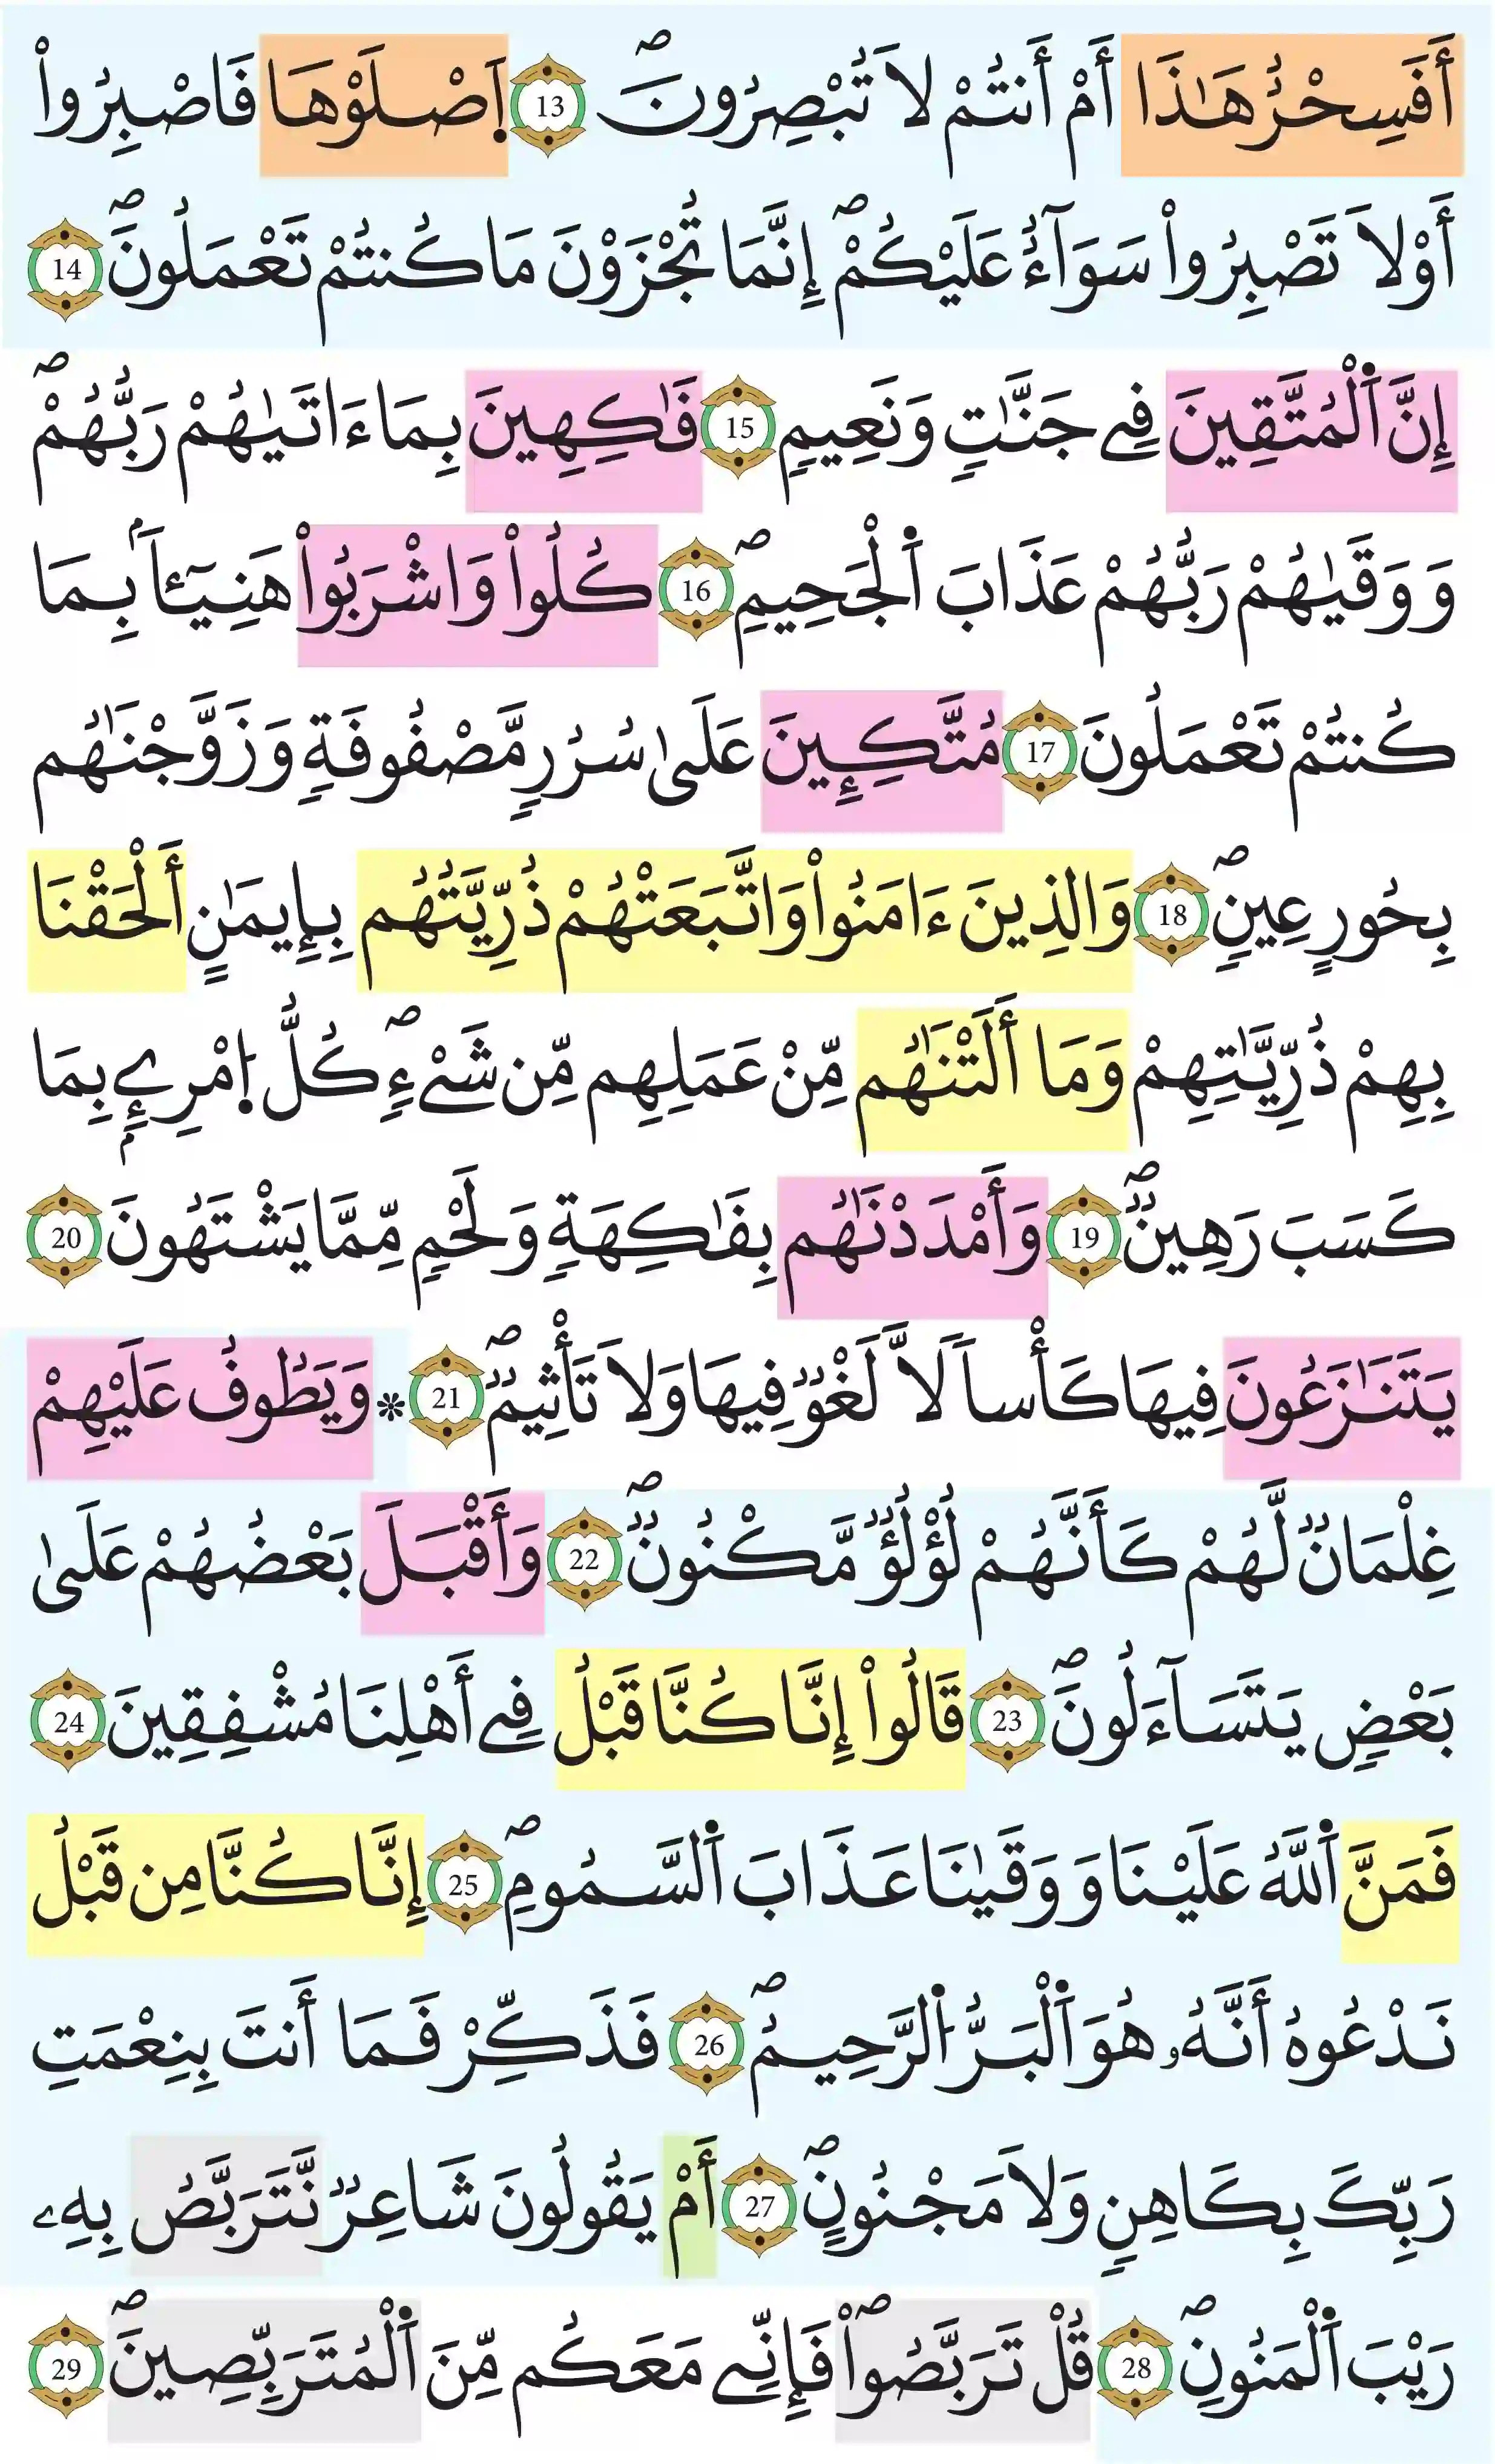 أَفَسِحْرٌ هَٰذَا أَمْ أَنتُمْ لَا تُبْصِرُونَۖ 13 اِ۪صْلَوْهَا فَاصْبِرُواْ
أَوْ لَا تَصْبِرُواْ سَوَآءٌ عَلَيْكُمْۖ إِنَّمَا تُجْزَوْنَ مَا كُنتُمْ تَعْمَلُونَۖ 14
إِنَّ اَ۬لْمُتَّقِينَ فِے جَنَّٰتٖ وَنَعِيمٖ 15 فَٰكِهِينَ بِمَا ءَاتَيٰهُمْ رَبُّهُمْۖ
وَوَقَيٰهُمْ رَبُّهُمْ عَذَابَ اَ۬لْجَحِيمِۖ 16 كُلُواْ وَاشْرَبُواْ هَنِيٓـٔاَۢ بِمَا
كُنتُمْ تَعْمَلُونَ 17 مُتَّكِـِٕينَ عَلَىٰ سُرُرٖ مَّصْفُوفَةٖ وَزَوَّجْنَٰهُم
بِحُورٍ عِينٖۖ 18 وَالذِينَ ءَامَنُواْ وَاتَّبَعَتْهُمْ ذُرِّيَّتُهُم بِإِيمَٰنٍ أَلْحَقْنَا
بِهِمْ ذُرِّيَّٰتِهِمْ وَمَا أَلَتْنَٰهُم مِّنْ عَمَلِهِم مِّن شَےْءٖۖ كُلُّ اُ۪مْرِےِٕۢ بِمَا
كَسَبَ رَهِينٞۖ 19 وَأَمْدَدْنَٰهُم بِفَٰكِهَةٖ وَلَحْمٖ مِّمَّا يَشْتَهُونَ 20
يَتَنَٰزَعُونَ فِيهَا كَأْساٗ لَّا لَغْوٞ فِيهَا وَلَا تَأْثِيمٞۖ 21 * وَيَطُوفُ عَلَيْهِمْ
غِلْمَانٞ لَّهُمْ كَأَنَّهُمْ لُؤْلُؤٞ مَّكْنُونٞۖ 22 وَأَقْبَلَ بَعْضُهُمْ عَلَىٰ
بَعْضٖ يَتَسَآءَلُونَۖ 23 قَالُواْ إِنَّا كُنَّا قَبْلُ فِے أَهْلِنَا مُشْفِقِينَ 24
فَمَنَّ اَ۬للَّهُ عَلَيْنَا وَوَقَيٰنَا عَذَابَ اَ۬لسَّمُومِۖ 25 إِنَّا كُنَّا مِن قَبْلُ
نَدْعُوهُ أَنَّهُۥ هُوَ اَ۬لْبَرُّ اُ۬لرَّحِيمُۖ 26 فَذَكِّرْ فَمَا أَنتَ بِنِعْمَتِ
رَبِّكَ بِكَاهِنٖ وَلَا مَجْنُونٍۖ 27 أَمْ يَقُولُونَ شَاعِرٞ نَّتَرَبَّصُ بِهِۦ
رَيْبَ اَ۬لْمَنُونِۖ 28 قُلْ تَرَبَّصُواْۖ فَإِنِّے مَعَكُم مِّنَ اَ۬لْمُتَرَبِّصِينَۖ 29